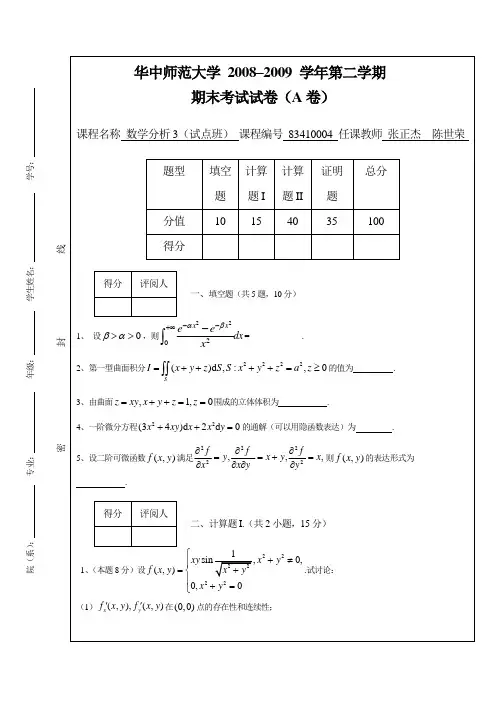 华中师范大学 2008–2009 学年第二学期
期末考试试卷（A 卷）
课程名称 数学分析3（试点班） 课程编号 83410004 任课教师 张正杰 陈世荣
题型 填空题 计算题 I 计算题 II 证明题 总分
分值 10 15 40 35 100
得分
得分 评阅人
一、填空题（共 5 题，10 分）
1、 设 $\beta>\alpha>0$，则 $\int_0^{+\infty}\frac{e^{-\alpha x^2}-e^{-\beta x^2}}{x^2}dx$=____________.
2、第一型曲面积分 $I=\iint_S(x+y+z)\mathrm{d}S,S:x^2+y^2+z^2=a^2,z\ge 0$ 的值为 ________.
3、由曲面 $z=xy,x+y+z=1,z=0$ 围成的立体体积为 ________.
4、一阶微分方程 $(3x^2+4xy)\mathrm{d}x+2x^2\mathrm{d}y=0$ 的通解（可以用隐函数表达）为 ________.
5、设二阶可微函数 $f(x,y)$ 满足 $\frac{\partial^2 f}{\partial x^2}=y,\frac{\partial^2 f}{\partial x\partial y}=x+y,\frac{\partial^2 f}{\partial y^2}=x,$ 则 $f(x,y)$ 的表达形式为
________.
得分 评阅人
二、计算题 I.（共 2 小题，15 分）
1、（本题 8 分）设 $f(x,y)=\begin{cases}xy\sin\frac{1}{\sqrt{x^2+y^2}},x^2+y^2\ne 0,\\0,x^2+y^2=0\end{cases}$.试讨论：
（1） $f_x'(x,y),f_y'(x,y)$ 在 $(0,0)$ 点的存在性和连续性；
院（系）： 专业： 年级： 学生姓名： 学号：
密 封 线